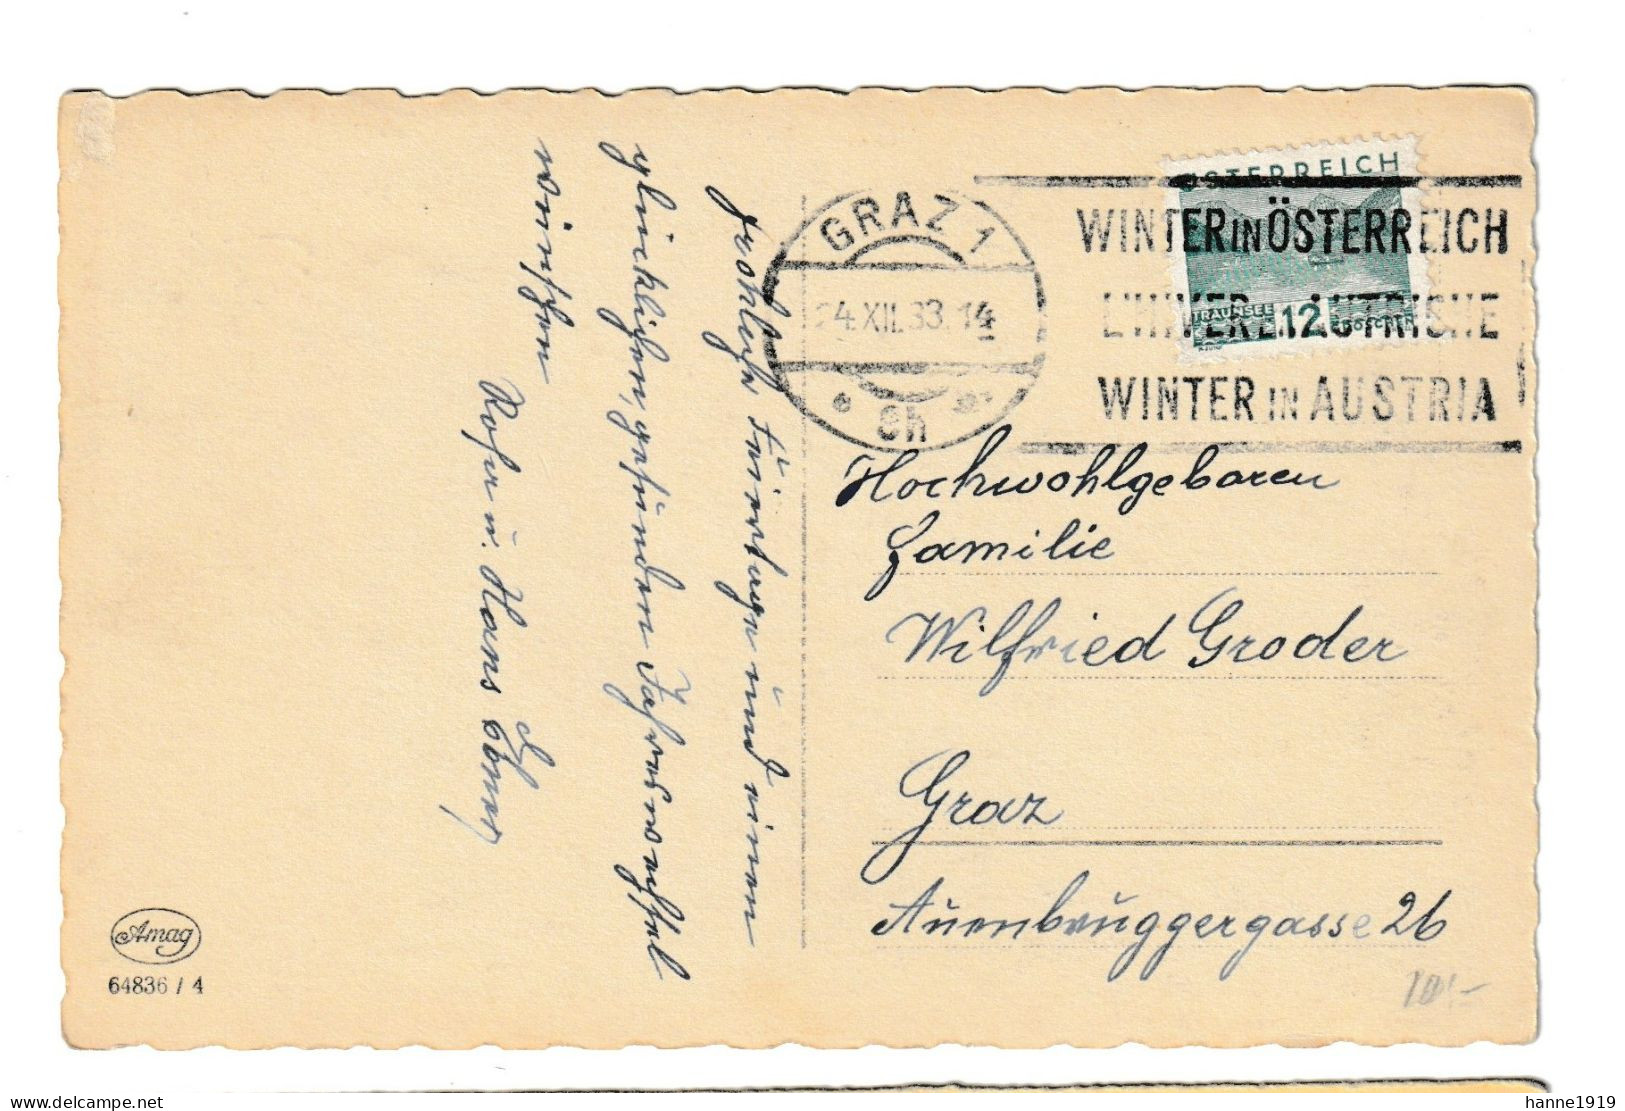 fröhliche Feiertage und einen
glücklichen, gesunden Jahreswechsel
wünschen
u. Hans
GRAZ 1
24.XII.33.14
8h
ÖSTERREICH
TRAUNSEE
12
GROSCHEN
WINTER IN ÖSTERREICH
L'HIVER EN AUTRICHE
WINTER IN AUSTRIA
Hochwohlgeboren
Familie
Wilfried Groder
Graz
Auenbruggergasse 26
Amag
64836 / 4
www.delcampe.net
hanne1919